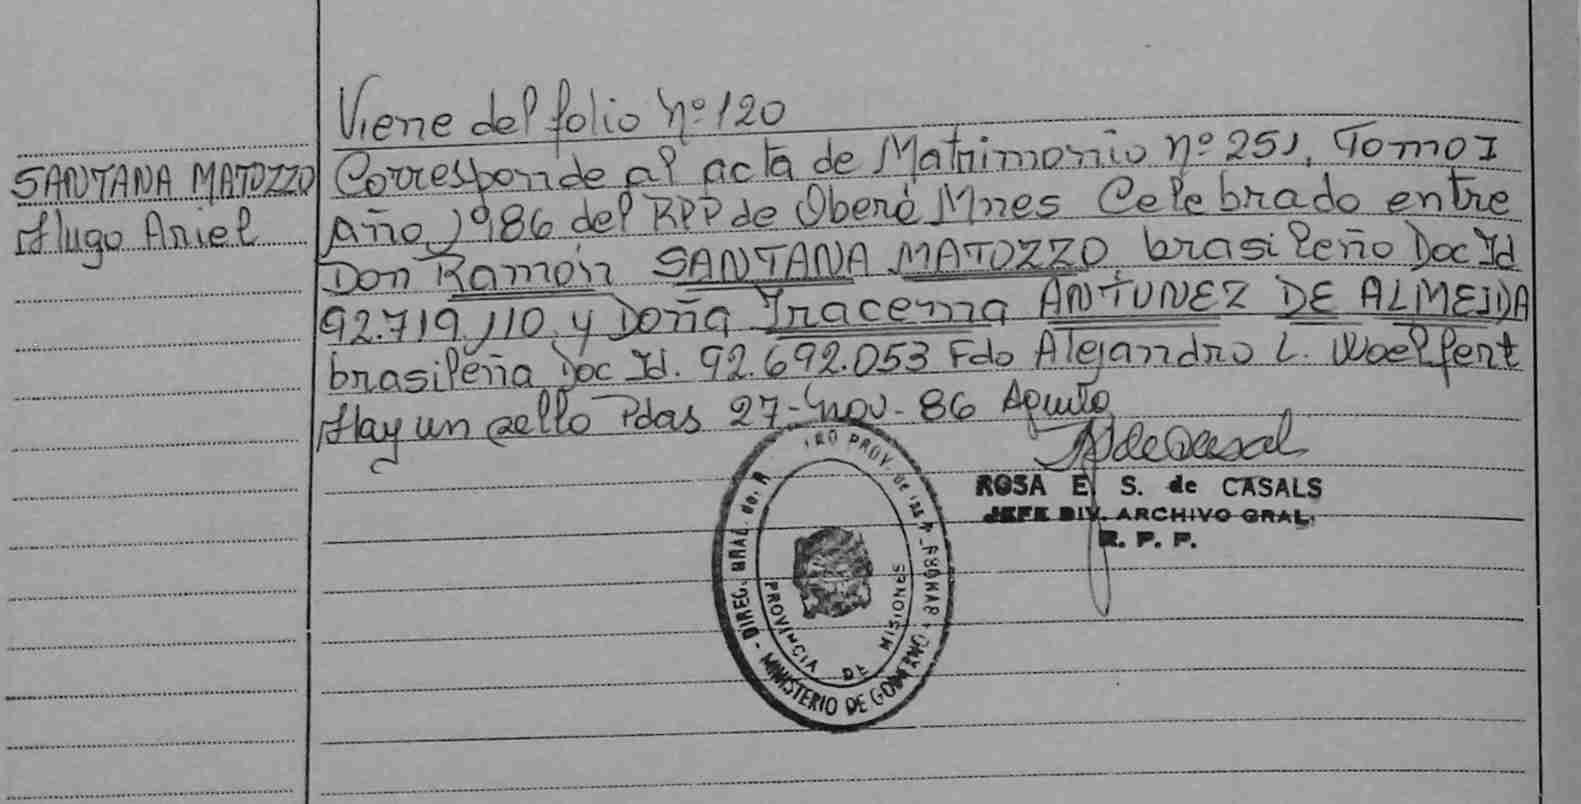 Viene del folio nº 120
SANTANA MATOZZO
Hugo Ariel
Corresponde al acta de Matrimonio nº 251, Tomo I
Año 1986 del RPP de Oberá Mnes Celebrado entre
Don Ramón SANTANA MATOZZO brasileño Doc Id
92.719.110, y Doña Iracema ANTUNEZ DE ALMEIDA
brasileña Doc Id. 92.692.053 Fdo Alejandro L.
Hay un sello Pdas 27-Nov-86
ROSA E. S. de CASALS
JEFE DIV. ARCHIVO GRAL.
R. P. P.
DIREC. GRAL. del R PROV. de las P
MINISTERIO DE GOBIERNO
PROVINCIA DE MISIONES